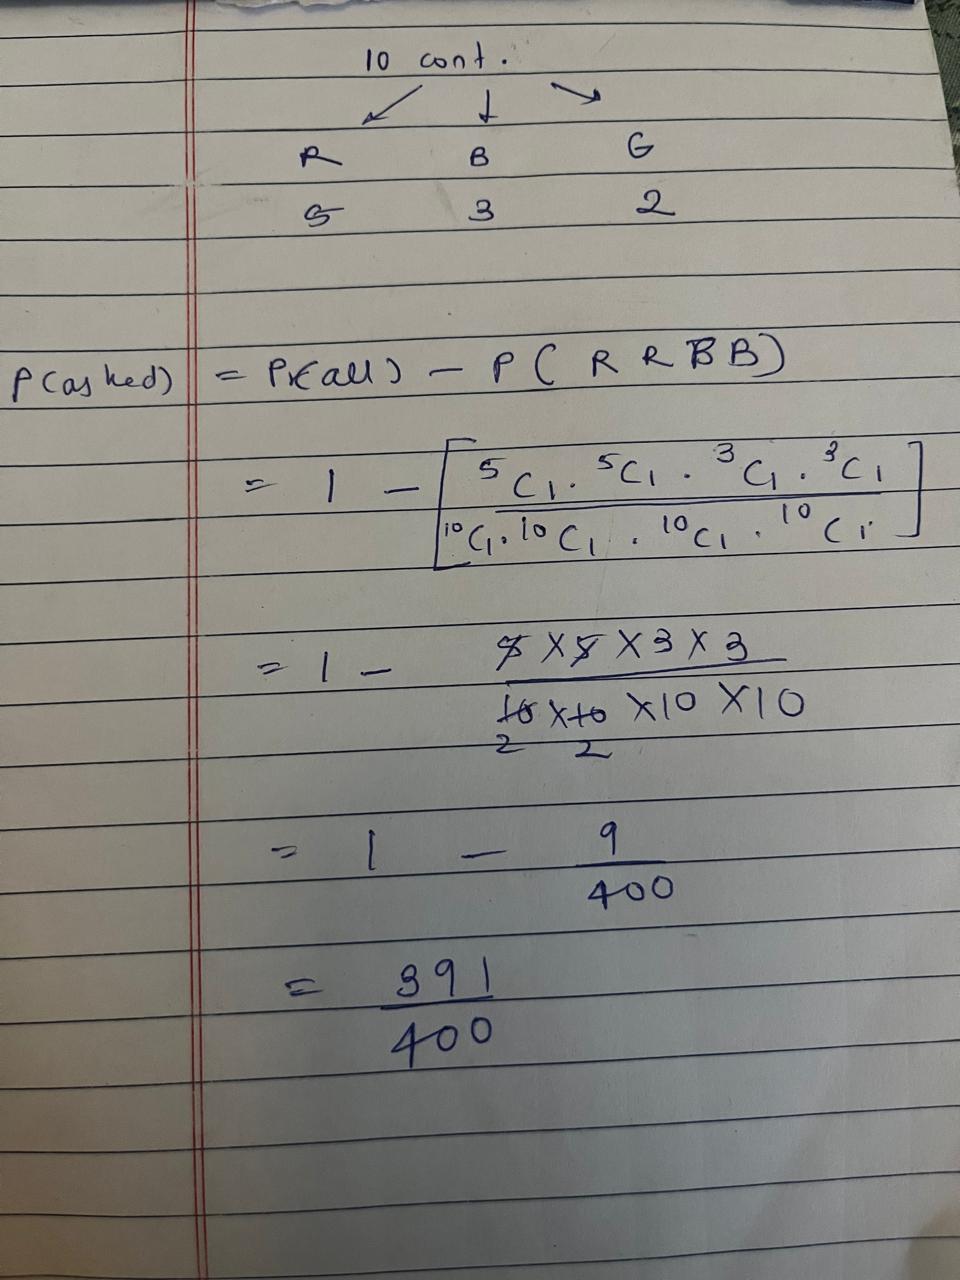 10 cont.
R B G
5 3 2
P(asked) = P(all) - P(RRBB)
= 1 - [ ⁵C₁ . ⁵C₁ . ³C₁ . ³C₁
¹⁰C₁ . ¹⁰C₁ . ¹⁰C₁ . ¹⁰C₁ ]
= 1 - 5 × 5 × 3 × 3
10 × 10 × 10 × 10
2 2
= 1 - 9
400
= 391
400